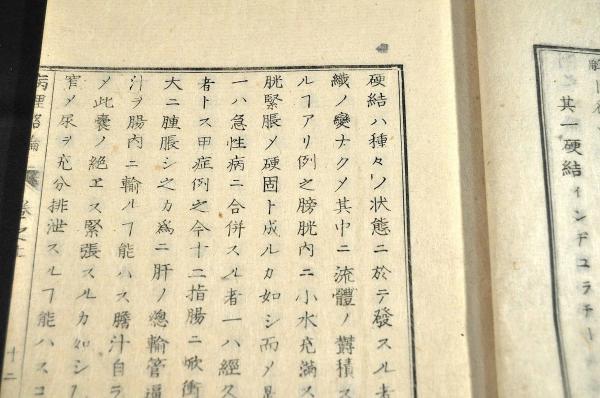 其一硬結インデユラチー
硬結ハ種々ノ状態ニ於テ發スル者
織ノ變ナクメ其中ニ流體ノ欝積ス
ルヿアリ例之膀胱內ニ小水充滿ス
胱緊脹メ硬固ト成ルカ如シ而メ
一ハ急性病ニ合併スル者一ハ經久
者トス甲症例之令十二指腸ニ焮衝
大ニ腫脹シ之カ爲ニ肝ノ總輸管逼
汁ヲ腸內ニ輸ルヿ能ハス膽汁自ラ
メ此囊ノ絕エス緊張スルカ如シ
窄メ尿ヲ充分排泄スルヿ能ハス
病理略論 卷之 十二